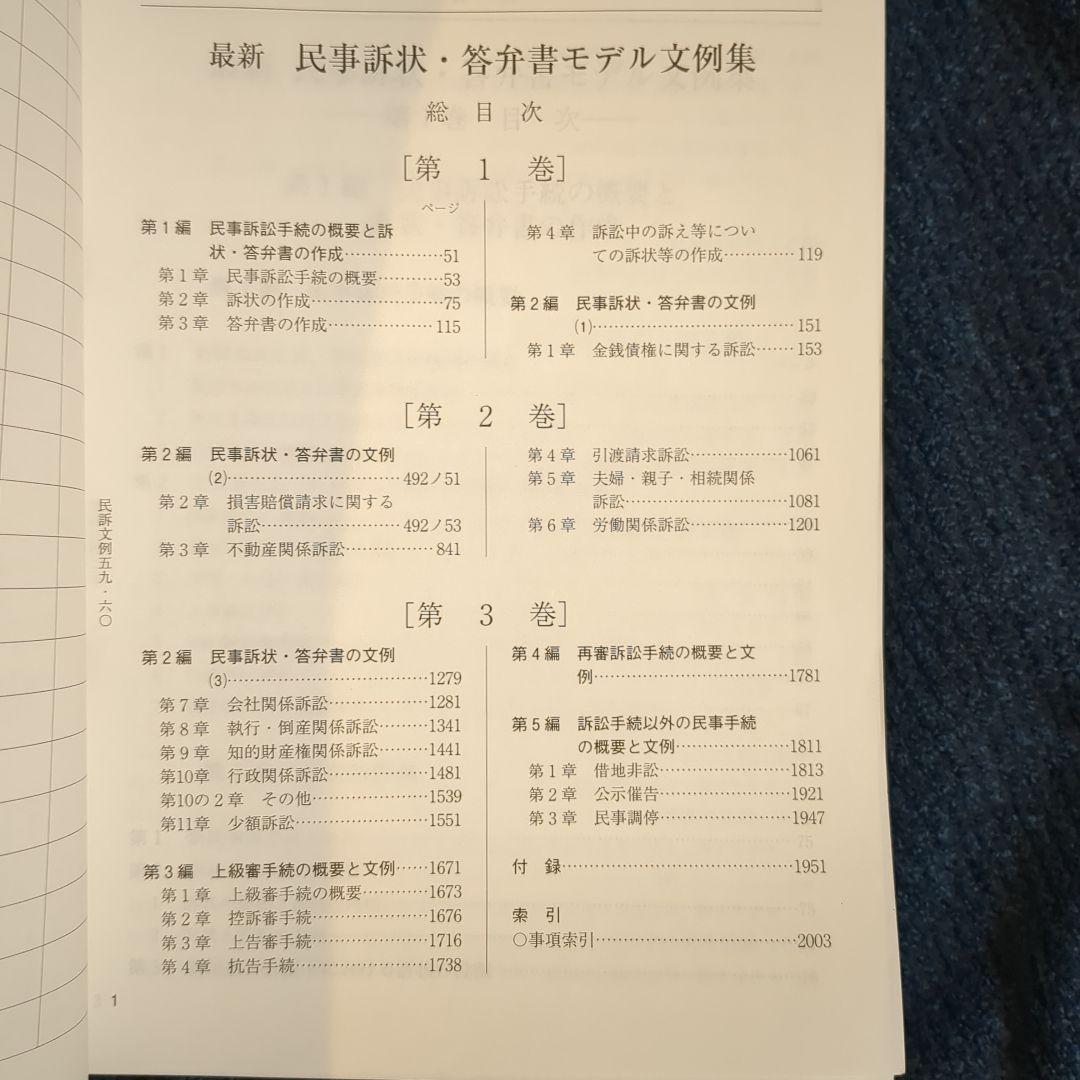 最新 民事訴状・答弁書モデル文例集
総目次
[第1巻]
ページ
第1編 民事訴訟手続の概要と訴
状・答弁書の作成………………51
第1章 民事訴訟手続の概要…………53
第2章 訴状の作成……………………75
第3章 答弁書の作成………………115
第4章 訴訟中の訴え等につい
ての訴状等の作成…………119
第2編 民事訴状・答弁書の文例
(1)………………………………151
第1章 金銭債権に関する訴訟……153
[第2巻]
第2編 民事訴状・答弁書の文例
(2)…………………………492ノ51
第2章 損害賠償請求に関する
訴訟……………………492ノ53
第3章 不動産関係訴訟……………841
第4章 引渡請求訴訟………………1061
第5章 夫婦・親子・相続関係
訴訟…………………………1081
第6章 労働関係訴訟………………1201
[第3巻]
第2編 民事訴状・答弁書の文例
(3)………………………………1279
第7章 会社関係訴訟………………1281
第8章 執行・倒産関係訴訟………1341
第9章 知的財産権関係訴訟………1441
第10章 行政関係訴訟………………1481
第10の2章 その他…………………1539
第11章 少額訴訟……………………1551
第3編 上級審手続の概要と文例……1671
第1章 上級審手続の概要…………1673
第2章 控訴審手続…………………1676
第3章 上告審手続…………………1716
第4章 抗告手続……………………1738
第4編 再審訴訟手続の概要と文
例………………………………1781
第5編 訴訟手続以外の民事手続
の概要と文例…………………1811
第1章 借地非訟……………………1813
第2章 公示催告……………………1921
第3章 民事調停……………………1947
付録……………………………………1951
索引
○事項索引………………………………2003
民訴文例五九・六〇
1